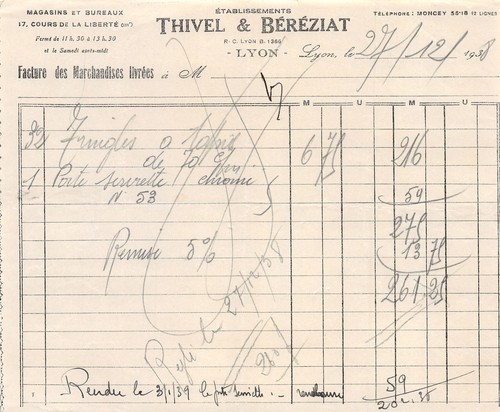 MAGASINS ET BUREAUX
17, COURS DE LA LIBERTÉ (IIIe)
Fermé de 11 h. 30 à 13 h. 30
et le Samedi après-midi
ÉTABLISSEMENTS
THIVEL & BÉRÉZIAT
R. C. LYON B. 1366
- LYON -
TÉLÉPHONE : MONCEY 55-18 (2 LIGNES)
Lyon, le 27/12/1938
Facture des Marchandises livrées à M
M U M U
32 Tringles a tapis 6 75 216
de 70 c/m
1 Porte serviette chrome 59
N° 53
275
Remise 5% 13 75
261.25
Réglé le 27/12/38
Rendu le 3/1/39 le porte serviette : 59
202.25